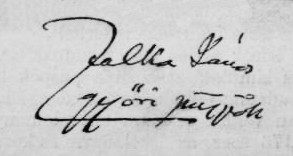 Zalka János
győri püspök